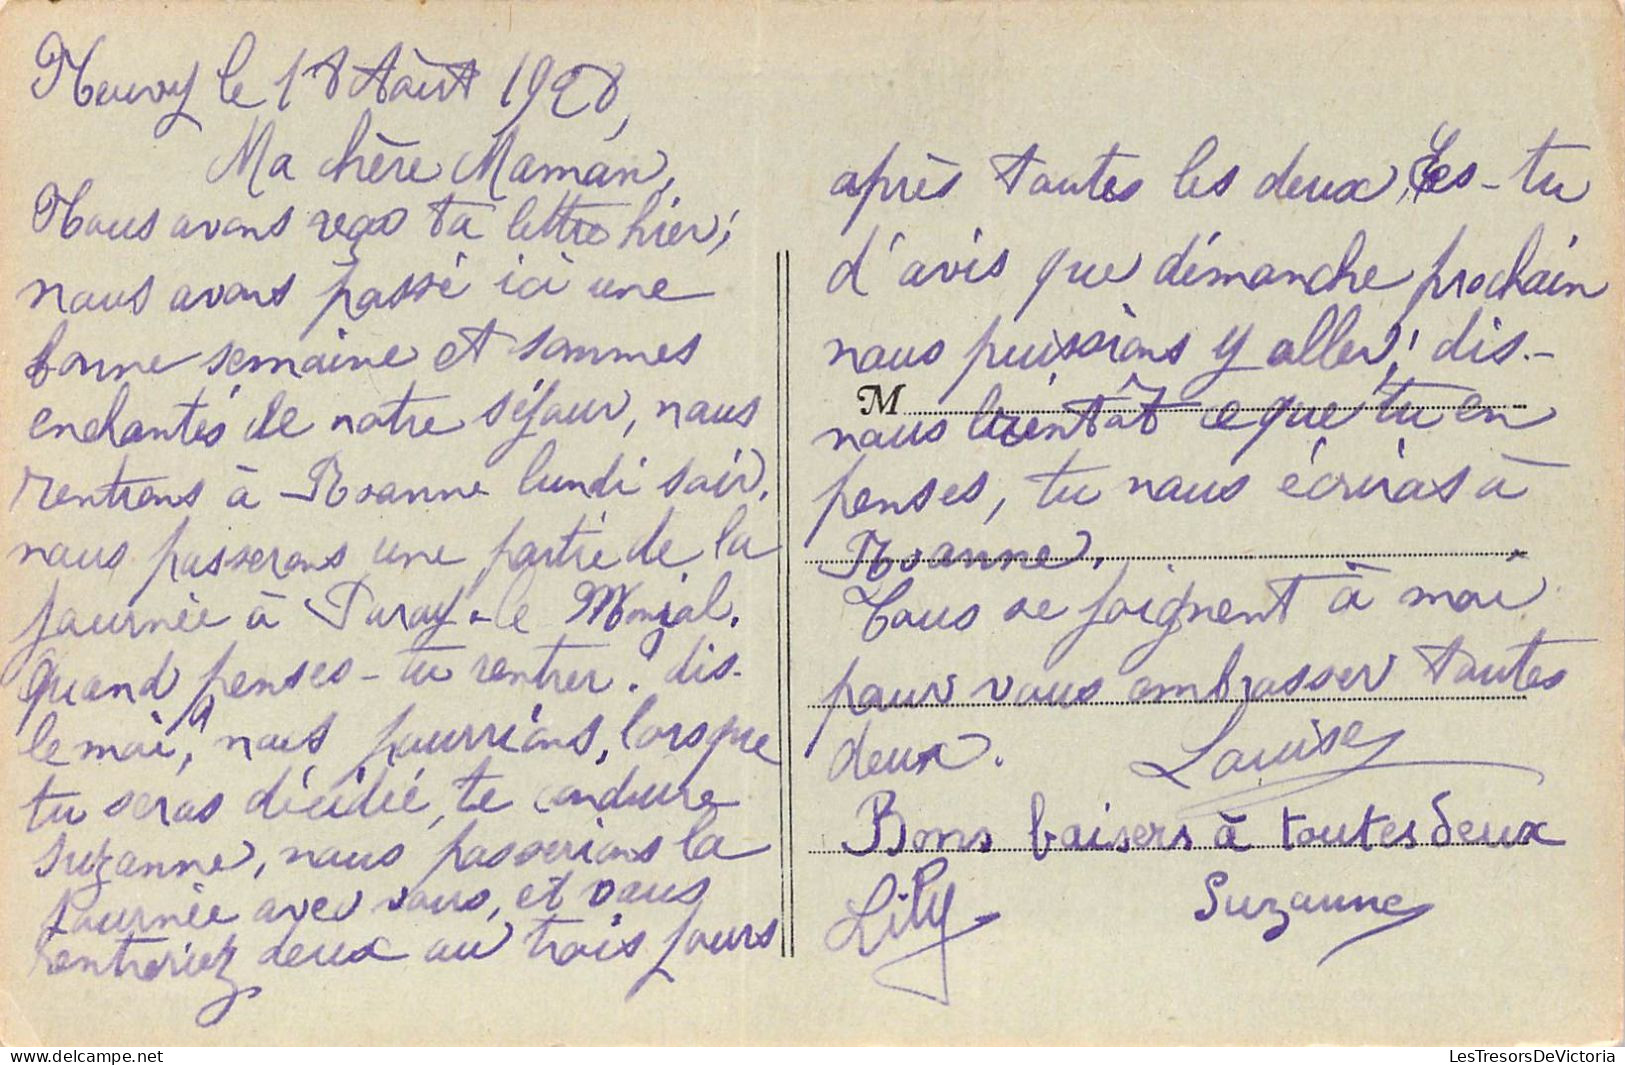 Neuvy le 18 Août 1928,
Ma chère Maman,
Nous avons reçu ta lettre hier,
nous avons passé ici une
bonne semaine et sommes
enchantés de notre séjour, nous
rentrons à Roanne lundi soir,
nous passerons une partie de la
journée à Paray-le Monial.
Quand penses-tu rentrer. dis-
le moi, nous pourrions, lorsque
tu seras décidée, te conduire
Suzanne, nous passerions la
journée avec vous, et vous
rentreriez deux ou trois jours
après toutes les deux, Es-tu
d'avis que dimanche prochain
nous puissions y aller, dis-
M
nous bientôt ce que tu en
penses, tu nous écriras à
Roanne.
Tous se joignent à moi
pour vous embrasser toutes
deux. Louise
Bons baisers à toutes deux
Lily Suzanne
LesTresorsDeVictoria